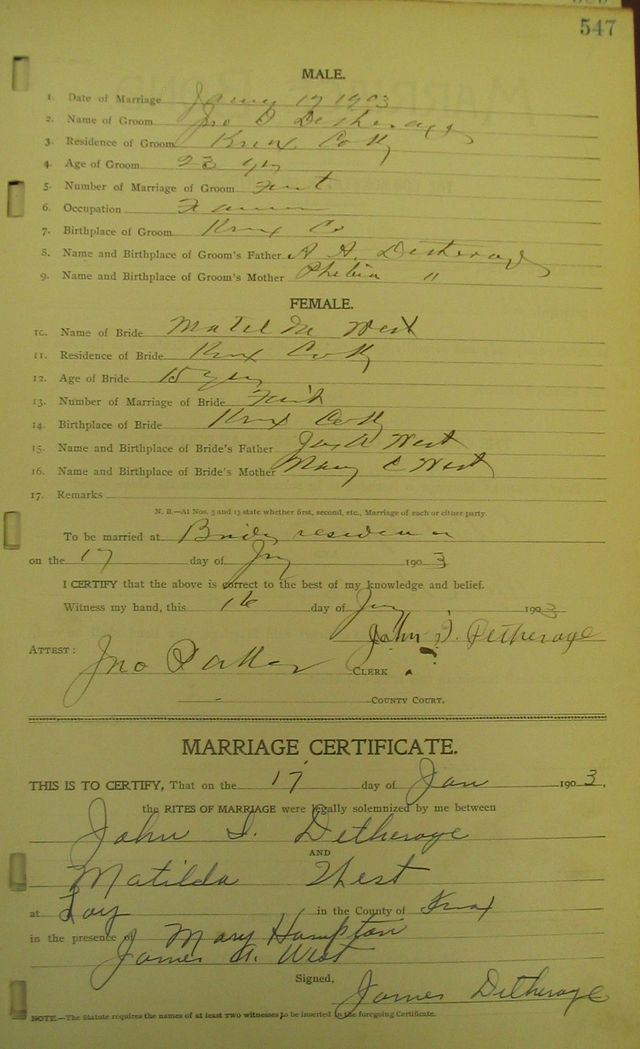 547
MALE.
1. Date of Marriage 17 1903
2. Name of Groom Jno D Detherage
3. Residence of Groom Knox Co Ky
4. Age of Groom 23 yrs
5. Number of Marriage of Groom First
6. Occupation Farmer
7. Birthplace of Groom Knox Co
8. Name and Birthplace of Groom's Father A. H. Detherage
9. Name and Birthplace of Groom's Mother Phebia "
FEMALE.
10. Name of Bride Matilda West
11. Residence of Bride Knox Co Ky
12. Age of Bride 15 yrs
13. Number of Marriage of Bride First
14. Birthplace of Bride Knox Co Ky
15. Name and Birthplace of Bride's Father Jas A West
16. Name and Birthplace of Bride's Mother Mary C West
17. Remarks
N. B.—At Nos. 5 and 13 state whether first, second, etc., Marriage of each or either party.
To be married at Brides residence
on the 17 day of Jny 1903
I CERTIFY that the above is correct to the best of my knowledge and belief.
Witness my hand, this 16 day of Jny 1903
John D. Detherage
ATTEST: Jno Parker CLERK
COUNTY COURT.
MARRIAGE CERTIFICATE.
THIS IS TO CERTIFY, That on the 17 day of Jan 1903,
the RITES OF MARRIAGE were legally solemnized by me between
John D. Detherage
AND
Matilda West
at in the County of Knox
in the presence of Mary Hampton
James A. West
Signed,
James Detherage
NOTE.—The Statute requires the names of at least TWO witnesses to be inserted in the foregoing Certificate.